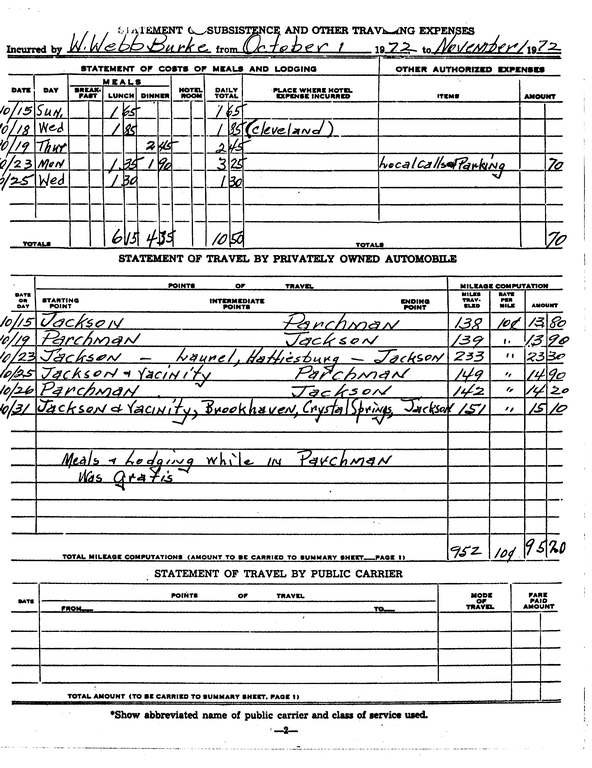 STATEMENT OF SUBSISTENCE AND OTHER TRAVELING EXPENSES
Incurred by W. Webb Burke from October 1 1972 to November 1 1972
STATEMENT OF COSTS OF MEALS AND LODGING OTHER AUTHORIZED EXPENSES
DATE DAY MEALS BREAK-FAST LUNCH DINNER HOTEL ROOM DAILY TOTAL PLACE WHERE HOTEL EXPENSE INCURRED ITEMS AMOUNT
10/15 Sun. 1 65 1 65
10/18 Wed 1 85 1 85 (Cleveland)
10/19 Thur 2 45 2 45
10/23 Mon 1 35 1 90 3 25 Local Calls & Parking 70
10/25 Wed 1 30 1 30
TOTALS 6 15 4 35 10 50 TOTALS 70
STATEMENT OF TRAVEL BY PRIVATELY OWNED AUTOMOBILE
DATE OR DAY POINTS OF TRAVEL MILEAGE COMPUTATION
STARTING POINT INTERMEDIATE POINTS ENDING POINT MILES TRAV-ELED RATE PER MILE AMOUNT
10/15 Jackson Parchman 138 10¢ 13 80
10/19 Parchman Jackson 139 " 13 90
10/23 Jackson - Laurel, Hattiesburg - Jackson 233 " 23 30
10/25 Jackson & Vacinity Parchman 149 " 14 90
10/26 Parchman Jackson 142 " 14 20
10/31 Jackson & Vacinity, Brookhaven, Crystal Springs, Jackson 151 " 15 10
Meals & Lodging while in Parchman
Was Gratis
TOTAL MILEAGE COMPUTATIONS (AMOUNT TO BE CARRIED TO SUMMARY SHEET PAGE 1) 952 10¢ 95 20
STATEMENT OF TRAVEL BY PUBLIC CARRIER
DATE POINTS OF TRAVEL MODE OF TRAVEL FARE PAID AMOUNT
FROM TO
TOTAL AMOUNT (TO BE CARRIED TO SUMMARY SHEET, PAGE 1)
*Show abbreviated name of public carrier and class of service used.
—2—